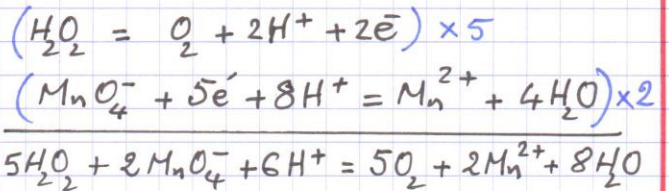 (H₂O₂ = O₂ + 2H⁺ + 2e⁻) × 5
(MnO₄⁻ + 5e⁻ + 8H⁺ = Mn²⁺ + 4H₂O) × 2
5H₂O₂ + 2MnO₄⁻ + 6H⁺ = 5O₂ + 2Mn²⁺ + 8H₂O